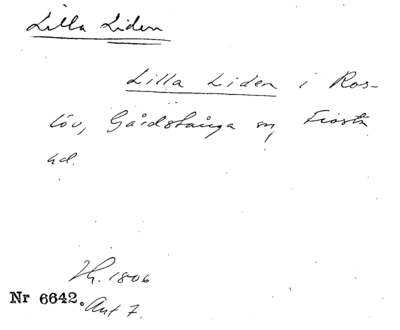 Lilla Liden
Lilla Liden i Ros-
löv, Gårdstånga sn, Frosta
hd.
Th. 1806
Nr 6642. Ant 7.